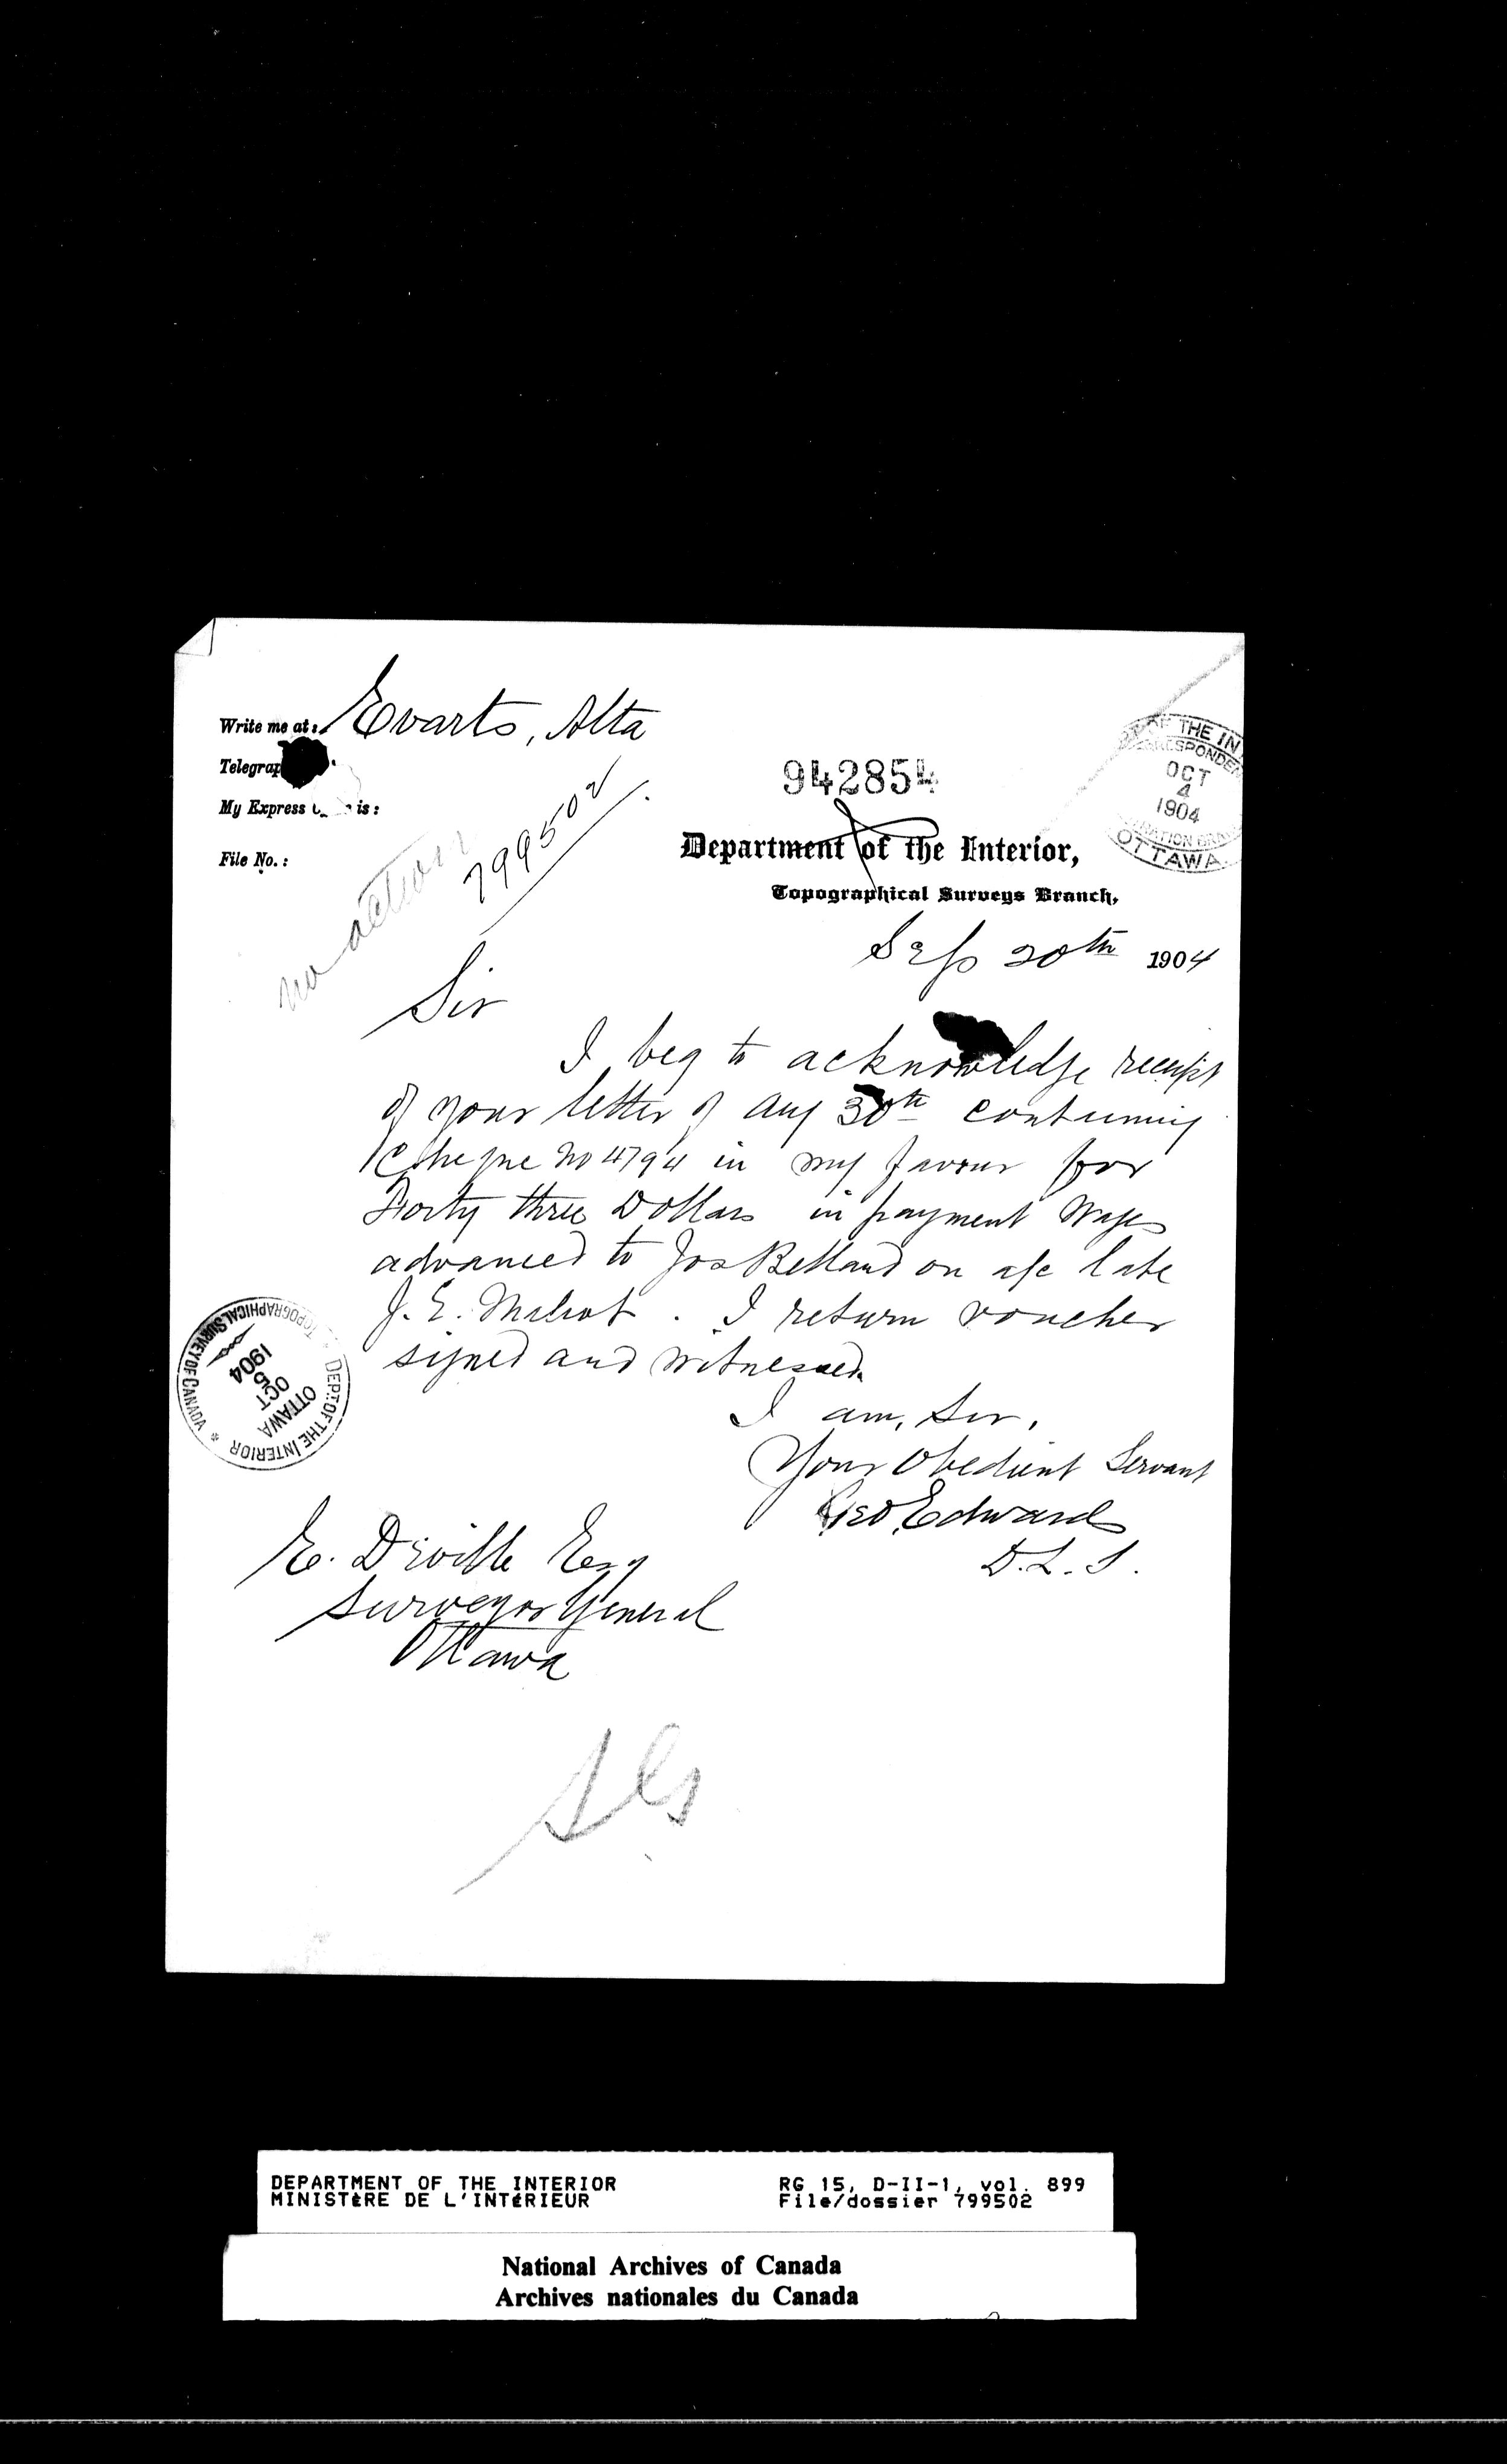 Write me at: Evarts, Alta
Telegrap
My Express is:
File No.:
no action
799502
942854
OF THE IN
CORRESPONDEN
OCT
4
1904
OTTAWA
Department of the Interior,
Topographical Surveys Branch,
Sep 20th 1904
Sir
I beg to acknowledge receipt
of your letter of Aug 30th containing
Cheque no 4794 in my favour for
Forty three Dollars in payment Wages
advanced to Jos Belland on a/c late
J. E. I return voucher
signed and witnessed.
I am, Sir,
Your Obedient Servant
Geo. Edwards
D.L.S.
TOPOGRAPHICAL SURVEY OF CANADA * DEPT. OF THE INTERIOR
OTTAWA
OCT
5
1904
E. Deville Esq
Surveyor General
Ottawa
DEPARTMENT OF THE INTERIOR RG 15, D-II-1, vol. 899
MINISTÈRE DE L'INTÉRIEUR File/dossier 799502
National Archives of Canada
Archives nationales du Canada